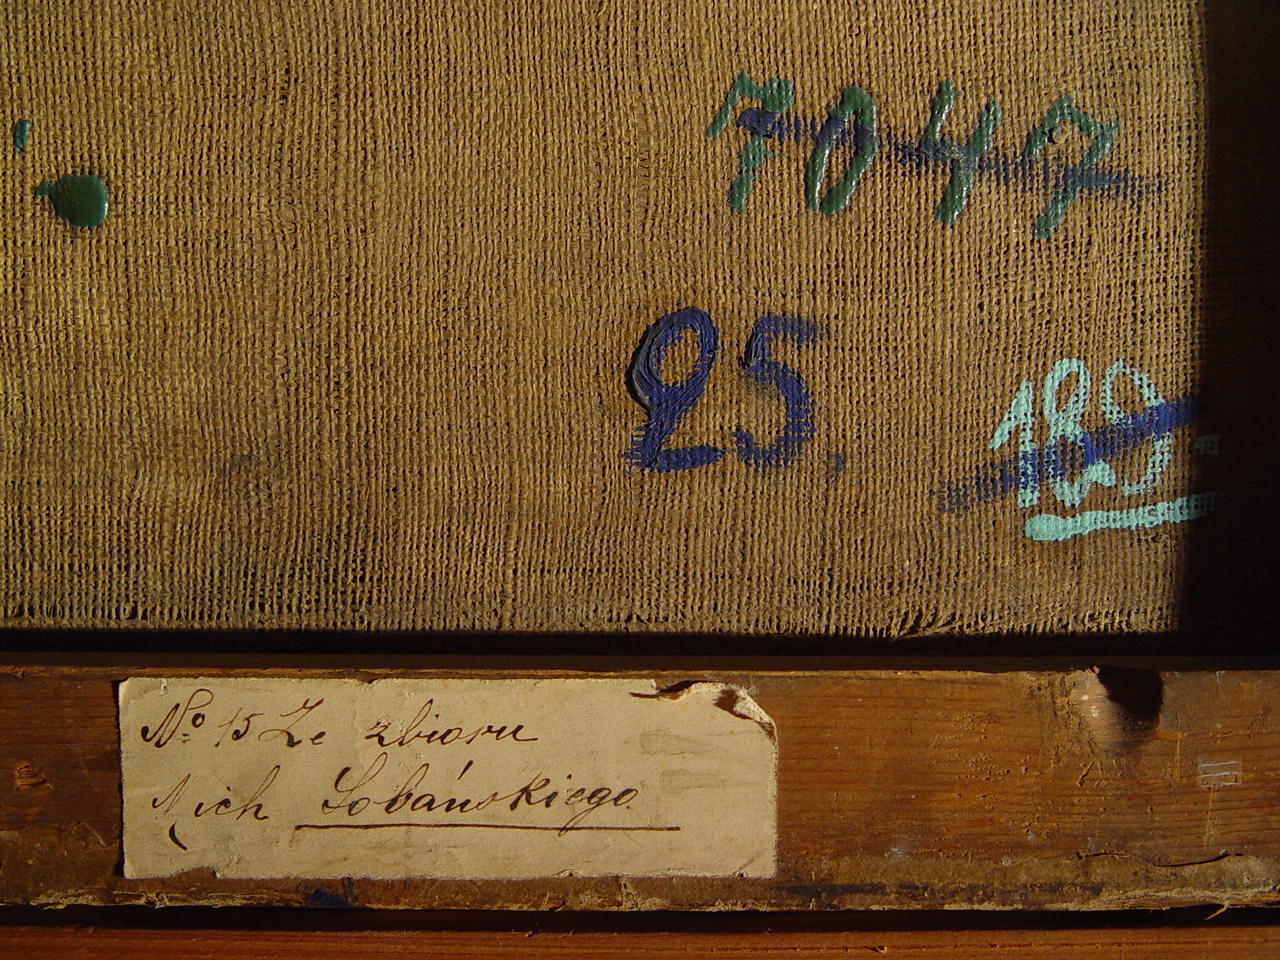 7047
25.
189
No 15 Ze zbioru
Mich Sobańskiego